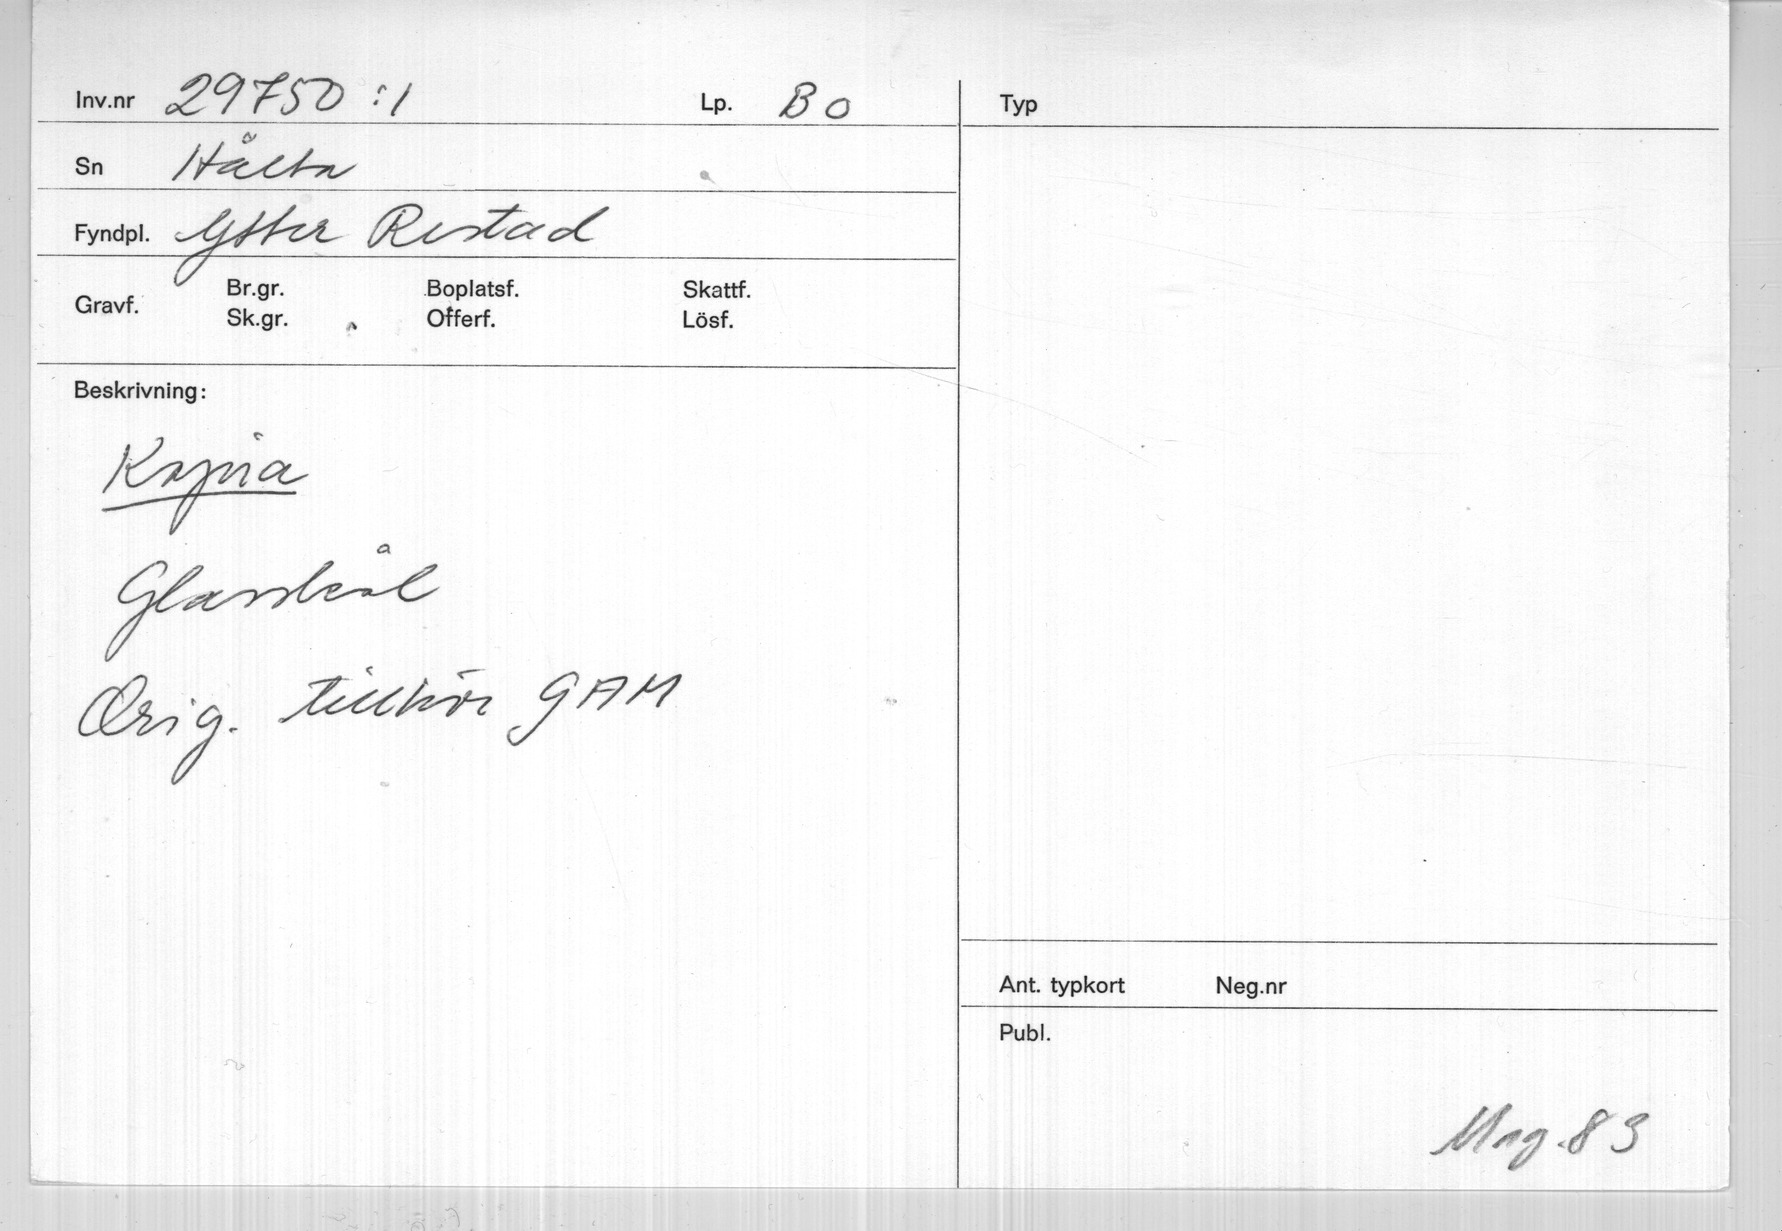 Inv.nr 29750:1 Lp. Bo
Sn Hålta
Fyndpl. Ytter Restad
Gravf. Br.gr. Boplatsf. Skattf.
Sk.gr. Offerf. Lösf.
Beskrivning:
Kopia
Glasskål
Orig. tillhör GAM
Typ
Ant. typkort Neg.nr
Publ.
Mag. 83